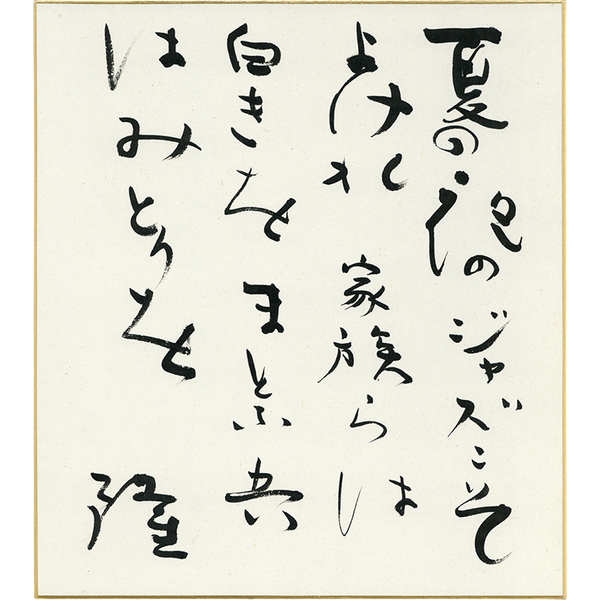 夏の祝のジャズこそ
よけれ 家族らは
白きをまとふ
はみとりを 隆